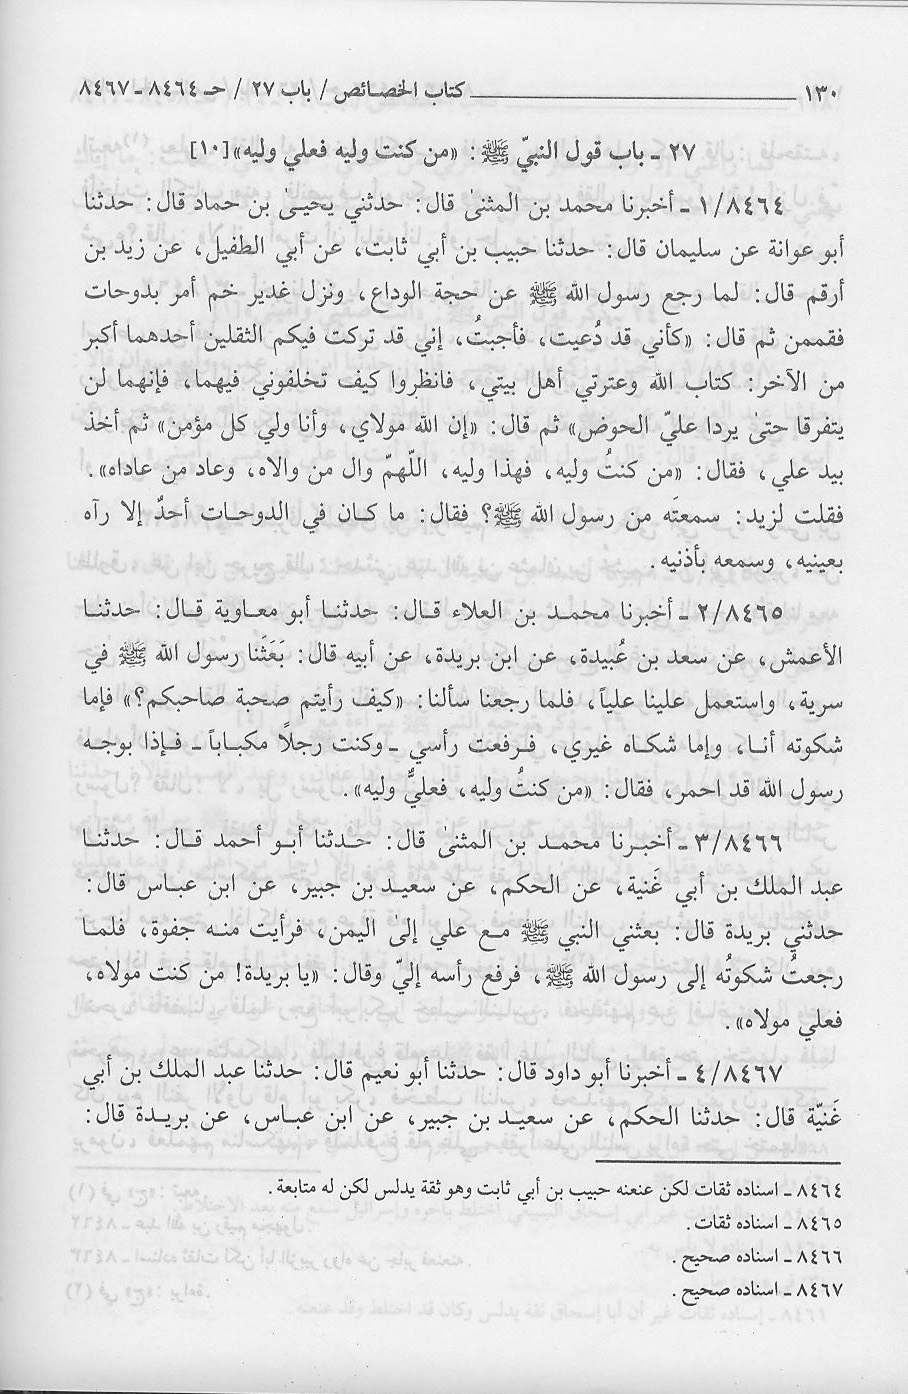 ١٣٠ ـــ كتاب الخصائص / باب ٢٧ / حـ ٨٤٦٤ ـ ٨٤٦٧
٢٧ ـ باب قول النبيّ ﷺ: «من كنت وليه فعلي وليه»[١٠]
١/٨٤٦٤ ـ أخبرنا محمد بن المثنىٰ قال: حدثني يحيىٰ بن حماد قال: حدثنا
أبو عوانة عن سليمان قال: حدثنا حبيب بن أبي ثابت، عن أبي الطفيل، عن زيد بن
أرقم قال: لما رجع رسول الله ﷺ عن حجة الوداع، ونزل غدير خم أمر بدوحات
فقممن ثم قال: «كأني قد دُعيت، فأجبتُ، إني قد تركت فيكم الثقلين أحدهما أكبر
من الآخر: كتاب الله وعترتي أهل بيتي، فانظروا كيف تخلفوني فيهما، فإنهما لن
يتفرقا حتىٰ يردا عليّ الحوض» ثم قال: «إن الله مولاي، وأنا ولي كل مؤمن» ثم أخذ
بيد علي، فقال: «من كنتُ وليه، فهذا وليه، اللّهمّ وال من والاه، وعاد من عاداه».
فقلت لزيد: سمعتَه من رسول الله ﷺ؟ فقال: ما كان في الدوحات أحدٌ إلا رآه
بعينيه، وسمعه بأذنيه.
٢/٨٤٦٥ ـ أخبرنا محمد بن العلاء قال: حدثنا أبو معاوية قال: حدثنا
الأعمش، عن سعد بن عُبيدة، عن ابن بريدة، عن أبيه قال: بَعَثَنا رسول الله ﷺ في
سرية، واستعمل علينا علياً، فلما رجعنا سألنا: «كيف رأيتم صحبة صاحبكم؟» فإما
شكوته أنا، وإما شكاه غيري، فرفعت رأسي ـ وكنت رجلاً مكباباً ـ فإذا بوجه
رسول الله قد احمر، فقال: «من كنتُ وليه، فعليٌّ وليه».
٣/٨٤٦٦ ـ أخبرنا محمد بن المثنىٰ قال: حدثنا أبو أحمد قال: حدثنا
عبد الملك بن أبي غَنية، عن الحكم، عن سعيد بن جبير، عن ابن عباس قال:
حدثني بريدة قال: بعثني النبي ﷺ مع علي إلىٰ اليمن، فرأيت منه جفوة، فلما
رجعتُ شكوتُه إلى رسول الله ﷺ، فرفع رأسه إليّ وقال: «يا بريدة! من كنت مولاه،
فعلي مولاه».
٤/٨٤٦٧ ـ أخبرنا أبو داود قال: حدثنا أبو نعيم قال: حدثنا عبد الملك بن أبي
غَنيّة قال: حدثنا الحكم، عن سعيد بن جبير، عن ابن عباس، عن بريدة قال:
٨٤٦٤ ـ اسناده ثقات لكن عنعنه حبيب بن أبي ثابت وهو ثقة يدلس لكن له متابعة.
٨٤٦٥ ـ اسناده ثقات.
٨٤٦٦ ـ اسناده صحيح.
٨٤٦٧ ـ اسناده صحيح.